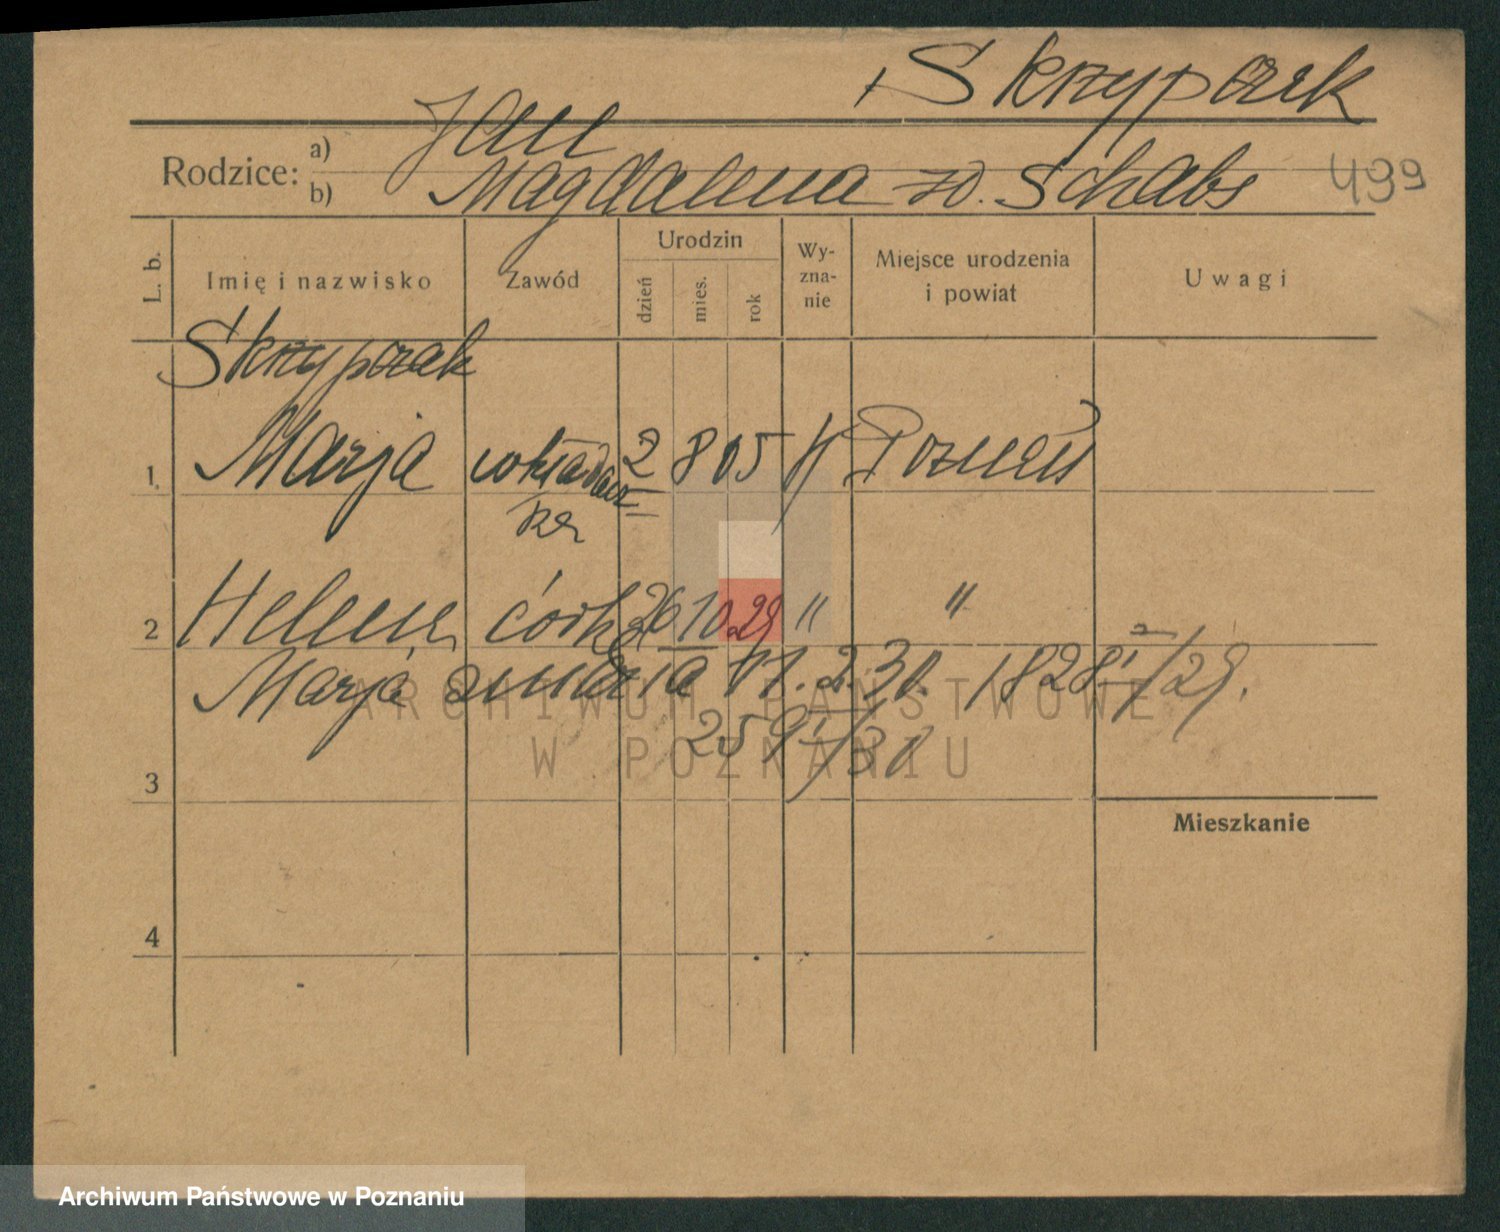 Skrzypczak
Rodzice: a) Jan
b) Magdalena zd. Schabs 499
L. b. Imię i nazwisko Zawód Urodzin dzień mies. rok Wy-zna-nie Miejsce urodzenia i powiat Uwagi
Skrzypczak
1 Marja wkładacz= 2 8 05 k Poznań
ka
2 Helena córka 26 10 29 " "
Marja zmarła 11.2.30. 1828 1/29.
259 1/30
3
Mieszkanie
4
ARCHIWUM PAŃSTWOWE
W POZNANIU
Archiwum Państwowe w Poznaniu